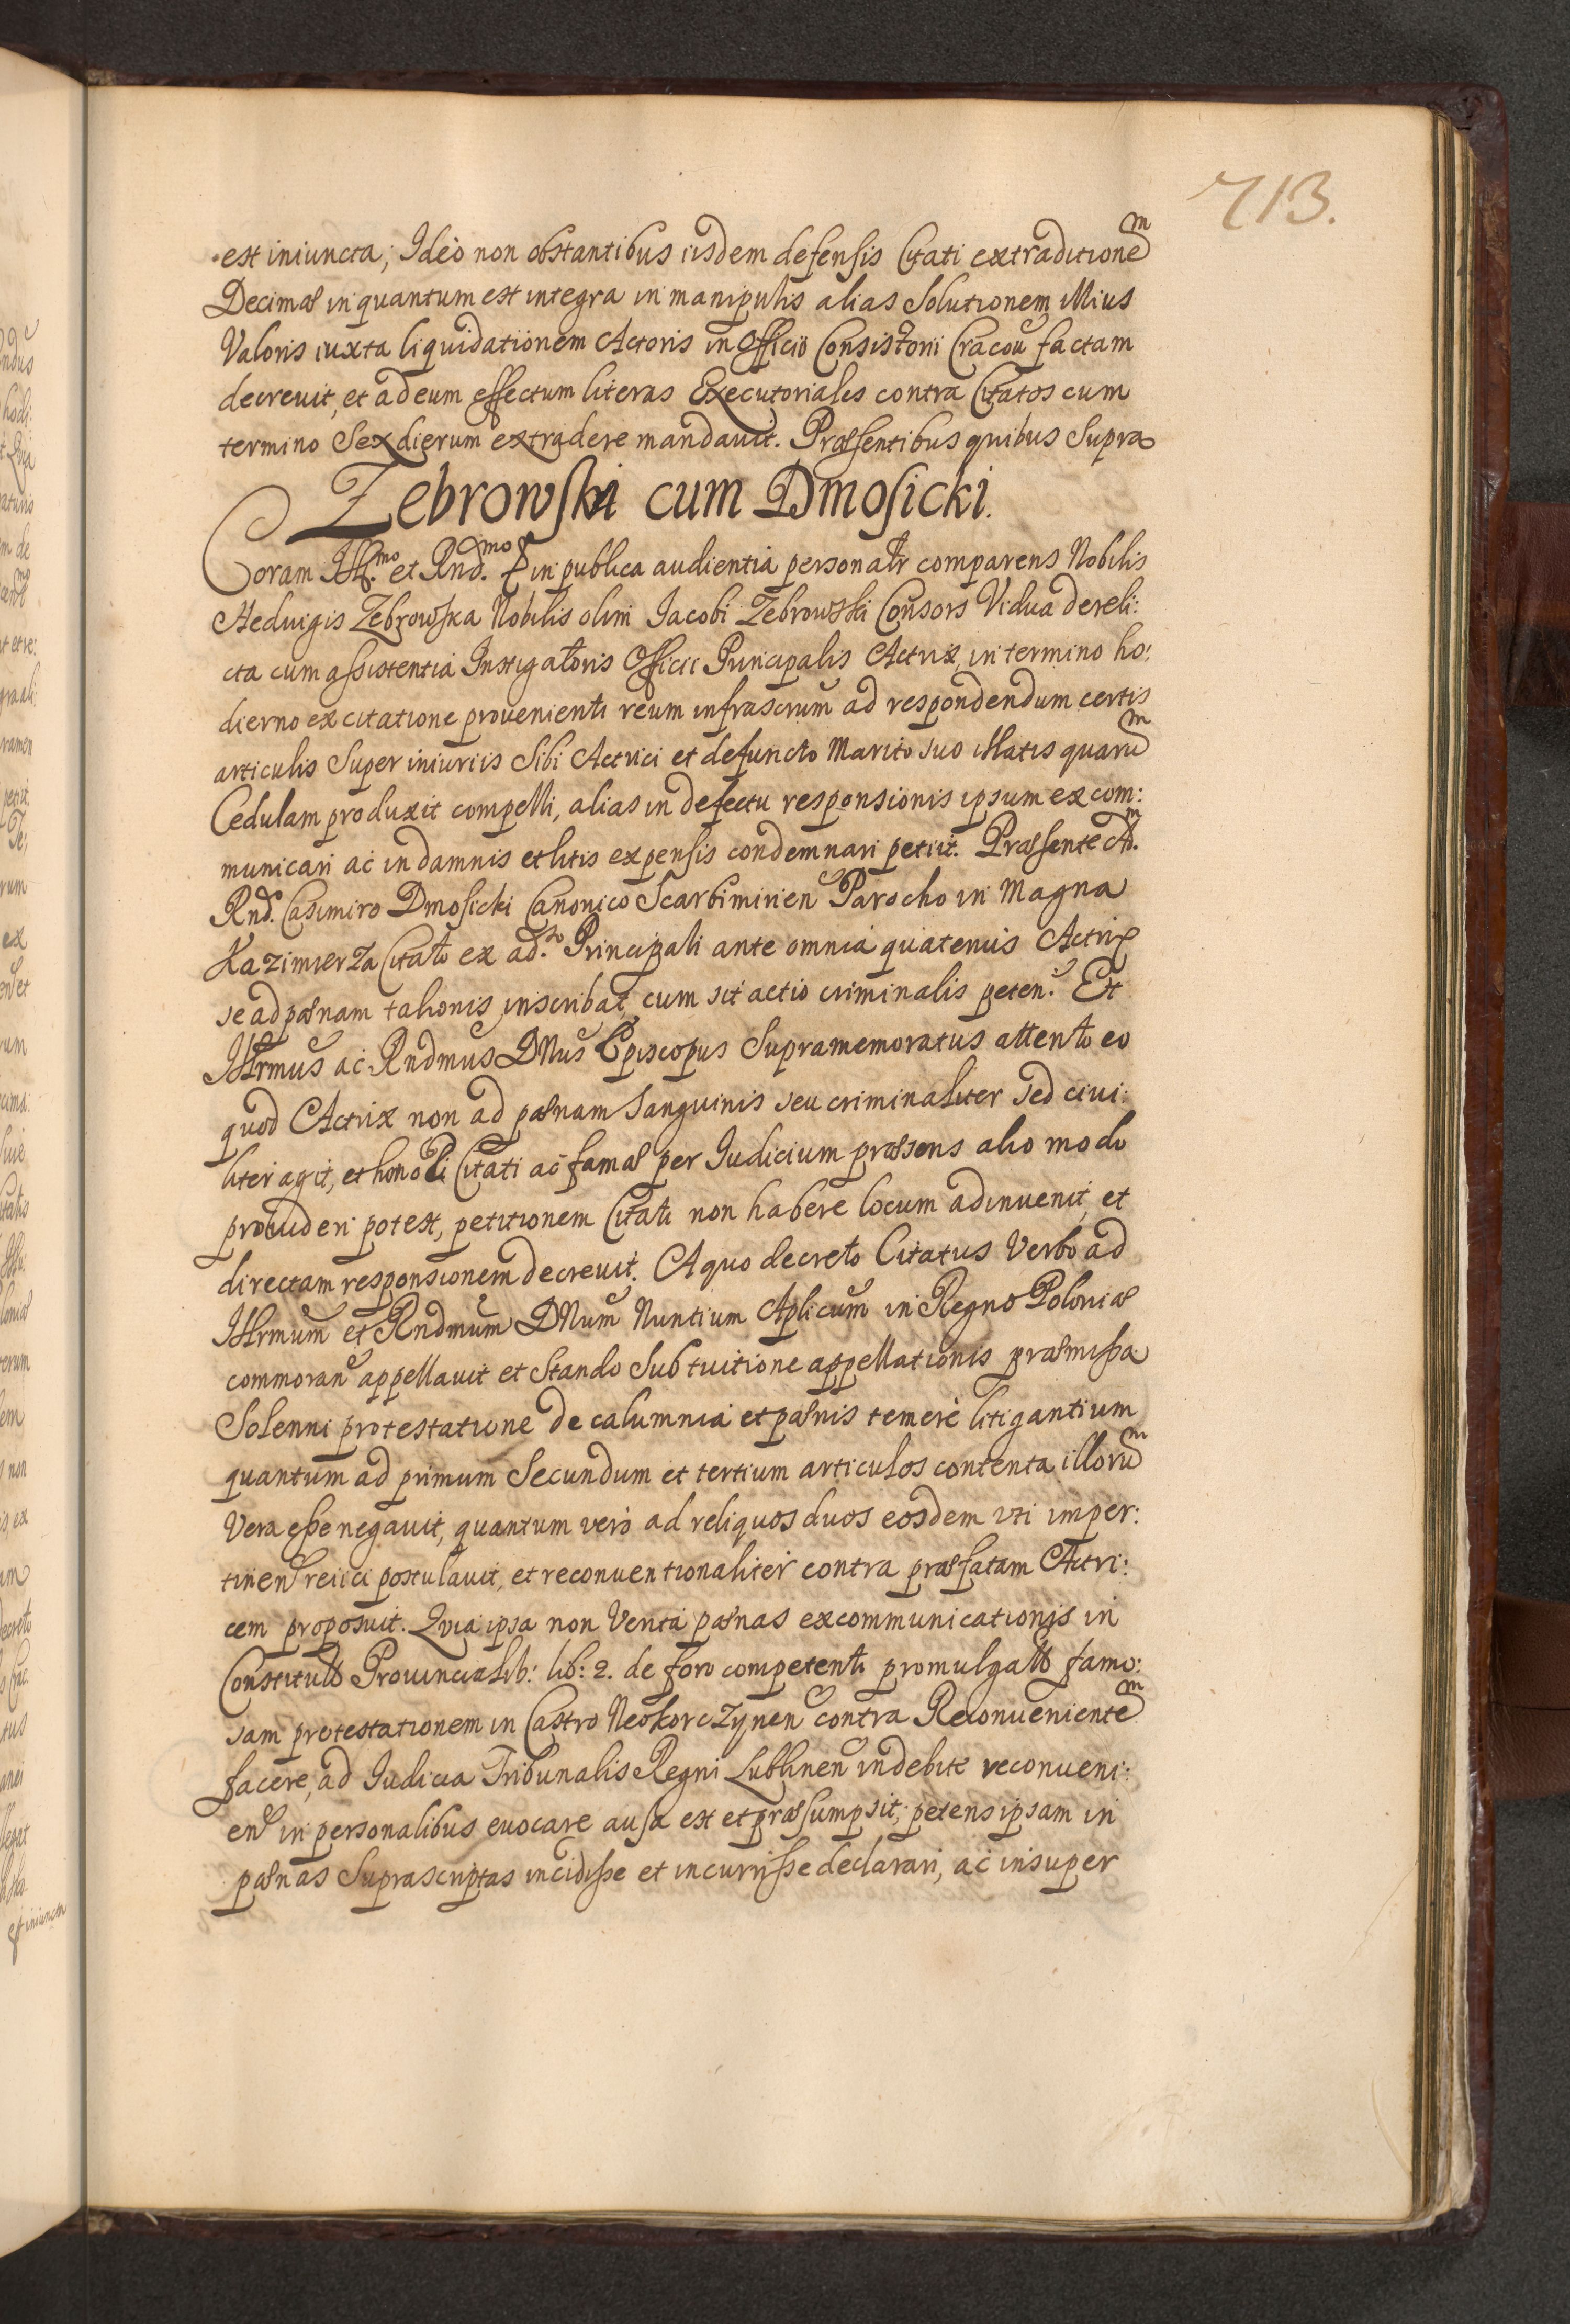 713.
est iniuncta; Ideò non obstantibus iisdem defensis Citati extraditionem
Decimæ inquantum est integra in manipulis alias Solutionem illius
Valoris iuxta liquidationem Actoris in Officio Consistorii Cracou factam
decreuit, et ad eum effectum literas Executoriales contra Citatos cum
termino Sex dierum extradere mandauit. Præsentibus quibus Supra
Zebrowski cum Dmosicki.
Coram Ill.mo et Rnd.mo in publica audientia personalr comparens Nobilis
Heduigis Zebrowska Nobilis olim Jacobi Zebrowski Consors Vidua dereli:
cta cum assistentia Instigatoris Officii Principalis Actrix, in termino ho:
dierno ex citatione prouenienti reum infrascrum ad respondendum certis
articulis Super iniuriis Sibi Actrici et defuncto Marito suo illatis quarum
Cedulam produxit compelli, alias in defectu responsionis ipsum excom:
municari ac in damnis et litis expensis condemnari petiit. Præsente Adm.
Rnd. Casimiro Dmosicki Canonico Scarbimirien Parocho in Magna
Kazimierza Citato ex ad.so Principali ante omnia quatenus Actrix
se ad pænam talionis inscribat, cum sit actio criminalis peten. Et
Illrmus ac Rndmus DNus Episcopus Supramemoratus attento eo
quod Actrix non ad pænam Sanguinis seu criminaliter sed ciui:
liter agit, et honori Citati ac famæ per Iudicium præsens alio modo
prouideri potest, petitionem Citati non habere locum adinuenit, et
directam responsionem decreuit. A quo decreto Citatus Verbo ad
Illrmum et Rndmum DNum Nuntium Aplicum in Regno Poloniæ
commoran appellauit et Stando Sub tuitione appellationis præmissa
Solenni protestatione de calumnia et pænis temerè litigantium
quantum ad primum Secundum et tertium articulos contenta illorum
Vera esse negauit, quantum verò ad reliquos duos eosdem vti imper:
tinen reiici postulauit, et reconuentionaliter contra præfatam Actri:
cem proposuit. Quia ipsa non Verita pænas excommunicationis in
Constitutt Prouincialib: lib: 2. de foro competenti promulgatt famo:
sam protestationem in Castro Neokorczynen contra Reconuenientem
facere, ad Iudicia Tribunalis Regni Lublinen indebite reconueni:
en in personalibus euocare ausa est et præsumpsit, petens ipsam in
pænas Suprascriptas incidisse et incurrisse declarari, ac insuper